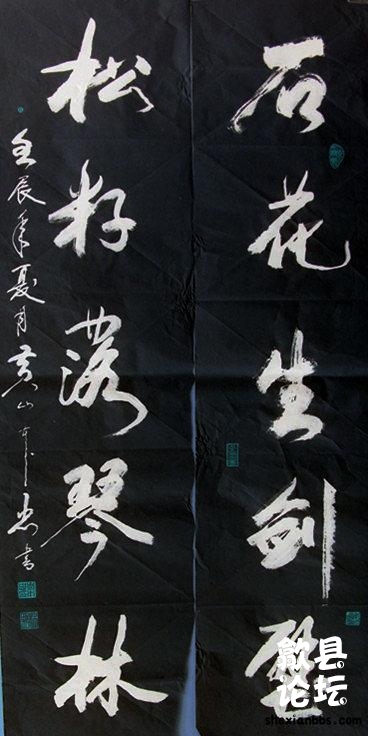 石花生剑壁
松籽落琴林
壬辰年夏月黄山 书
歙县
论坛
shexianbbs.com